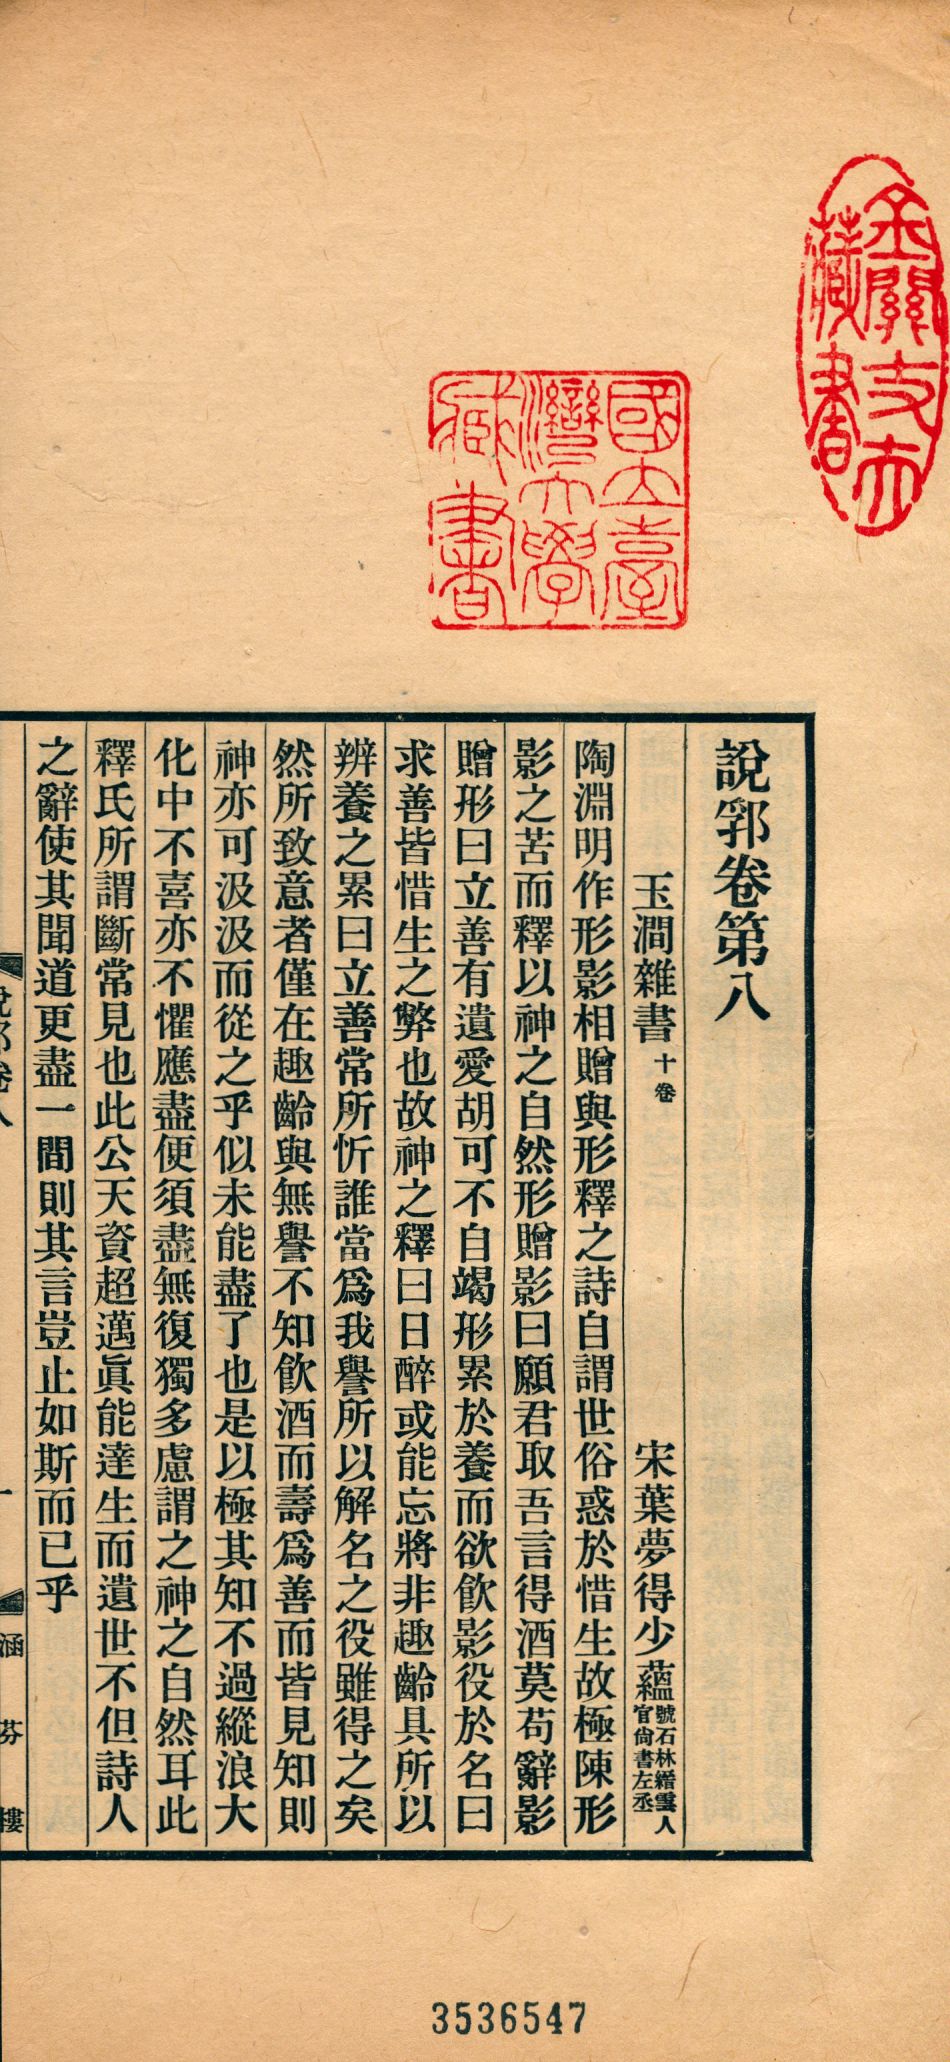 說郛卷第八
玉澗雜書 十卷 宋葉夢得少蘊 號石林縉雲人官尙書左丞
陶淵明作形影相贈與形釋之詩自謂世俗惑於惜生故極陳形
影之苦而釋以神之自然形贈影曰願君取吾言得酒莫苟辭影
贈形曰立善有遺愛胡可不自竭形累於養而欲飮影役於名曰
求善皆惜生之弊也故神之釋曰日醉或能忘將非趣齡具所以
辨養之累曰立善常所忻誰當爲我譽所以解名之役雖得之矣
然所致意者僅在趣齡與無譽不知飮酒而壽爲善而皆見知則
神亦可汲汲而從之乎似未能盡了也是以極其知不過縱浪大
化中不喜亦不懼應盡便須盡無復獨多慮謂之神之自然耳此
釋氏所謂斷常見也此公天資超邁眞能達生而遺世不但詩人
之辭使其聞道更盡一間則其言豈止如斯而已乎
說郛卷八 一 涵芬樓
國立臺灣大學藏書
藏書
3536547